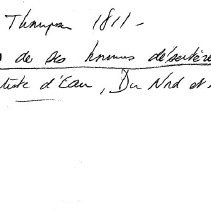 Thompson 1811 -
de ses hommes désertère
d'Eau, Du Nord et